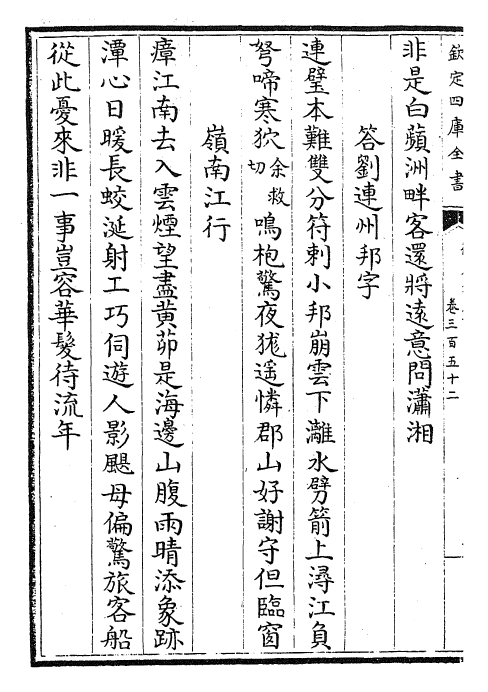 欽定四庫全書
卷三百五十二
非是白蘋洲畔客還將遠意問瀟湘
答劉連州邦字
連璧本難雙分符刺小邦崩雲下灕水劈箭上潯江負
弩啼寒狖余救切鳴枹驚夜狵遥憐郡山好謝守但臨窗
嶺南江行
瘴江南去入雲煙望盡黄茆是海邊山腹雨晴添象跡
潭心日暖長蛟涎射工巧伺遊人影颶母偏驚旅客船
從此憂來非一事豈容華髮待流年